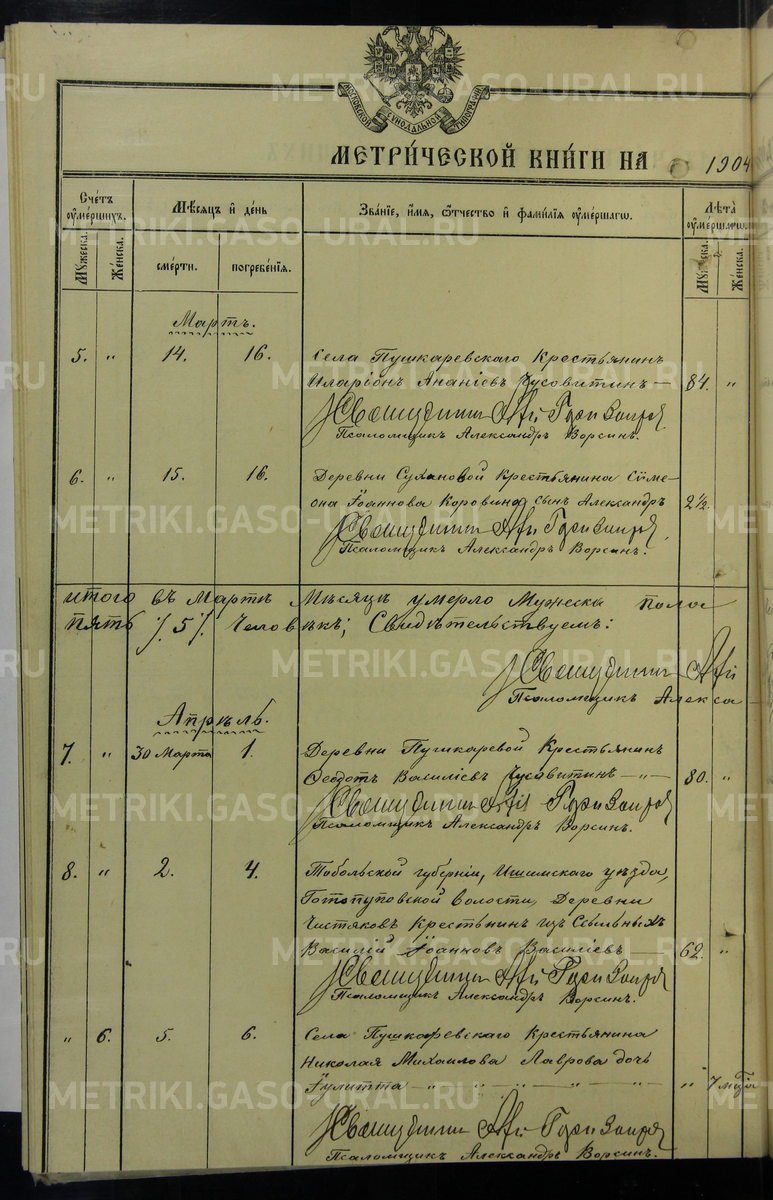 МОСКОВСКОЙ СѴНОДАЛЬНОЙ ТИПОГРАФІИ
МЕТРИ́ЧЕСКОЙ КНИ́ГИ НА 1904
Сче́тъ ᲂу҆ме́ршихъ.
Му́жеска.
Же́нска.
Мѣ́сѧцъ и҆ де́нь
сме́рти.
погребе́нїѧ.
Зва́нїе, и҆́мѧ, ѻ҆́тчество и҆ фами́лїѧ ᲂу҆ме́ршагѡ.
Лѣ́та ᲂу҆ме́ршагѡ.
Му́жеска.
Же́нска.
Мартъ.
5. " 14. 16. Села Пушкаревскаго Крестьянинъ
Иларіонъ Ананіевъ Чусовитинъ — 84. "
Священникъ
Псаломщикъ Александръ Ворсинъ.
6. " 15. 16. Деревни Сухановой Крестьянина Симе-
она Іоаннова Коровина сынъ Александръ 2½. "
Священникъ
Псаломщикъ Александръ Ворсинъ.
итого въ Мартѣ Мѣсяцѣ умерло Мужеска пола
пять /.5/. Человѣкъ; Свидѣтельствуемъ:
Священникъ
Псаломщикъ Алекса
Апрѣль.
7. " 30 Марта 1. Деревни Пушкаревой Крестьянинъ
Ѳеодотъ Василіевъ Чусовитинъ — " — 80. "
Священникъ
Псаломщикъ Александръ Ворсинъ.
8. " 2. 4. Тобольской губерніи, Ишимскаго уѣзда,
Готопуповской волости, Деревни
Чистяковъ Крестьянинъ изъ Ссыльныхъ
Василій Іоанновъ Василіевъ — 62. "
Священникъ
Псаломщикъ Александръ Ворсинъ.
" 6. 5. 6. Села Пушкаревскаго Крестьянина
Николая Михаилова Лаврова дочь
Іулитта — " — " — " — " — " " 7 мѣсѧ
Священникъ
Псаломщикъ Александръ Ворсинъ.
METRIKI.GASO-URAL.RU